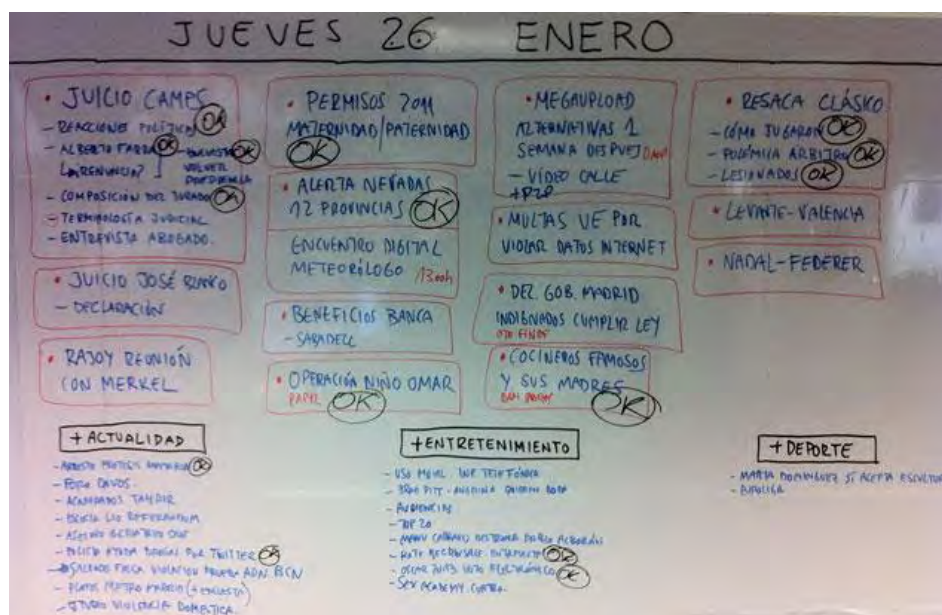 JUEVES 26 ENERO
• JUICIO CAMPS
– REACCIONES POLÍTICAS OK
– ALBERTO FABRA OK – ENCUESTA OK
¿RENUNCIA? VOLVER
– COMPOSICIÓN DEL JURADO OK
– TERMINOLOGÍA JUDICIAL
– ENTREVISTA ABOGADO.
• JUICIO JOSÉ BLANCO
– DECLARACIÓN
• RAJOY REUNIÓN
CON MERKEL
• PERMISOS 2011
MATERNIDAD/PATERNIDAD
OK
• ALERTA NEVADAS
12 PROVINCIAS OK
ENCUENTRO DIGITAL
METEORÓLOGO 13:00h
• BENEFICIOS BANCA
– SABADELL
• OPERACIÓN NIÑO OMAR
OK
• MEGAUPLOAD
ALTERNATIVAS 1
SEMANA DESPUÉS
– VÍDEO CALLE
+ P2P
• MULTAS UE POR
VIOLAR DATOS INTERNET
• DEL. GOB. MADRID
INDIGNADOS CUMPLIR LEY
• COCINEROS FAMOSOS
Y SUS MADRES
OK
• RESACA CLÁSICO
– CÓMO JUGARON OK
– POLÉMICA ARBITRO OK
– LESIONADOS OK
• LEVANTE-VALENCIA
• NADAL-FEDERER
+ ACTUALIDAD
– ARRESTO PROTESIS OK
– FORO DAVOS.
– ACAMPADOS
– ESCOCIA REFERENDUM
– ASESINO
– POLICIA POR TWITTER OK
– VIOLACION PRUEBA ADN BCN
– METRO MADRID (+ ENCUESTA)
– VIOLENCIA DOMESTICA.
+ ENTRETENIMIENTO
– USO MOVIL
– BRAD PITT - ANGELINA BODA
– AUDIENCIAS
– TOP 20
– OK
– OSCAR ELECTRÓNICO OK
– SEX ACADEMY CUATRO.
+ DEPORTE
– MARTA DOMINGUEZ SÍ ACEPTA